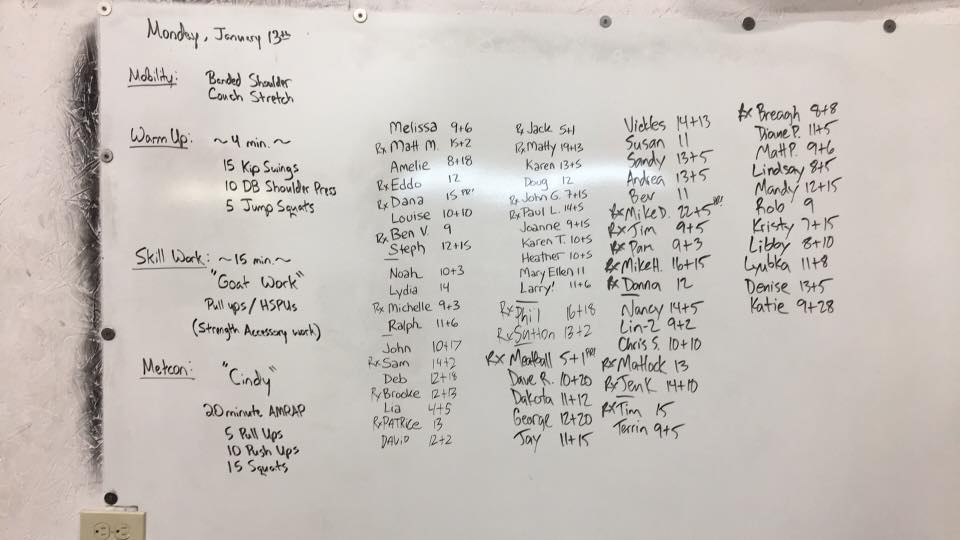 Monday, January 13th
Mobility: Banded Shoulder
Couch Stretch
Warm Up: ~4 min.~
15 Kip Swings
10 DB Shoulder Press
5 Jump Squats
Skill Work: ~15 min.~
"Goat Work"
Pull ups / HSPUs
(Strength Accessory work)
Metcon: "Cindy"
20 minute AMRAP
5 Pull Ups
10 Push Ups
15 Squats
Melissa 9+6
Rx Matt M. 15+2
Amelie 8+18
Rx Eddo 12
Rx Dana 15 PR!
Louise 10+10
Rx Ben V. 9
Steph 12+15
Noah 10+3
Lydia 14
Rx Michelle 9+3
Ralph 11+6
John 10+17
Rx Sam 14+2
Deb 12+18
Rx Brooke 12+13
Lia 4+5
Rx PATRICE 13
DAVID 12+2
Rx Jack 5+1
Rx Matty 19+13
Karen 13+5
Doug 12
Rx John G. 7+15
Rx Paul L. 14+5
Joanne 9+15
Karen T. 10+5
Heather 10+5
Mary Ellen 11
Larry! 11+6
Rx Phil 16+18
Rx Sutton 13+2
Rx Meatball 5+1 PR!
Dave R. 10+20
Dakota 11+12
George 12+20
Jay 11+15
Vickles 14+13
Susan 11
Sandy 13+5
Andrea 13+5
Bev 11
Rx Mike D. 22+5 PR!
Rx Jim 9+5
Rx Pam 9+3
Rx Mike H. 16+15
Rx Donna 12
Nancy 14+5
Lin-Z 9+2
Chris S. 10+10
Rx Matlock 13
Rx Jen K 14+10
Rx Tim 15
Terrin 9+5
Rx Breagh 8+8
Diane P. 11+5
Matt P. 9+6
Lindsay 8+5
Mandy 12+15
Rob 9
Kristy 7+15
Libby 8+10
Lyubka 11+8
Denise 13+5
Katie 9+28